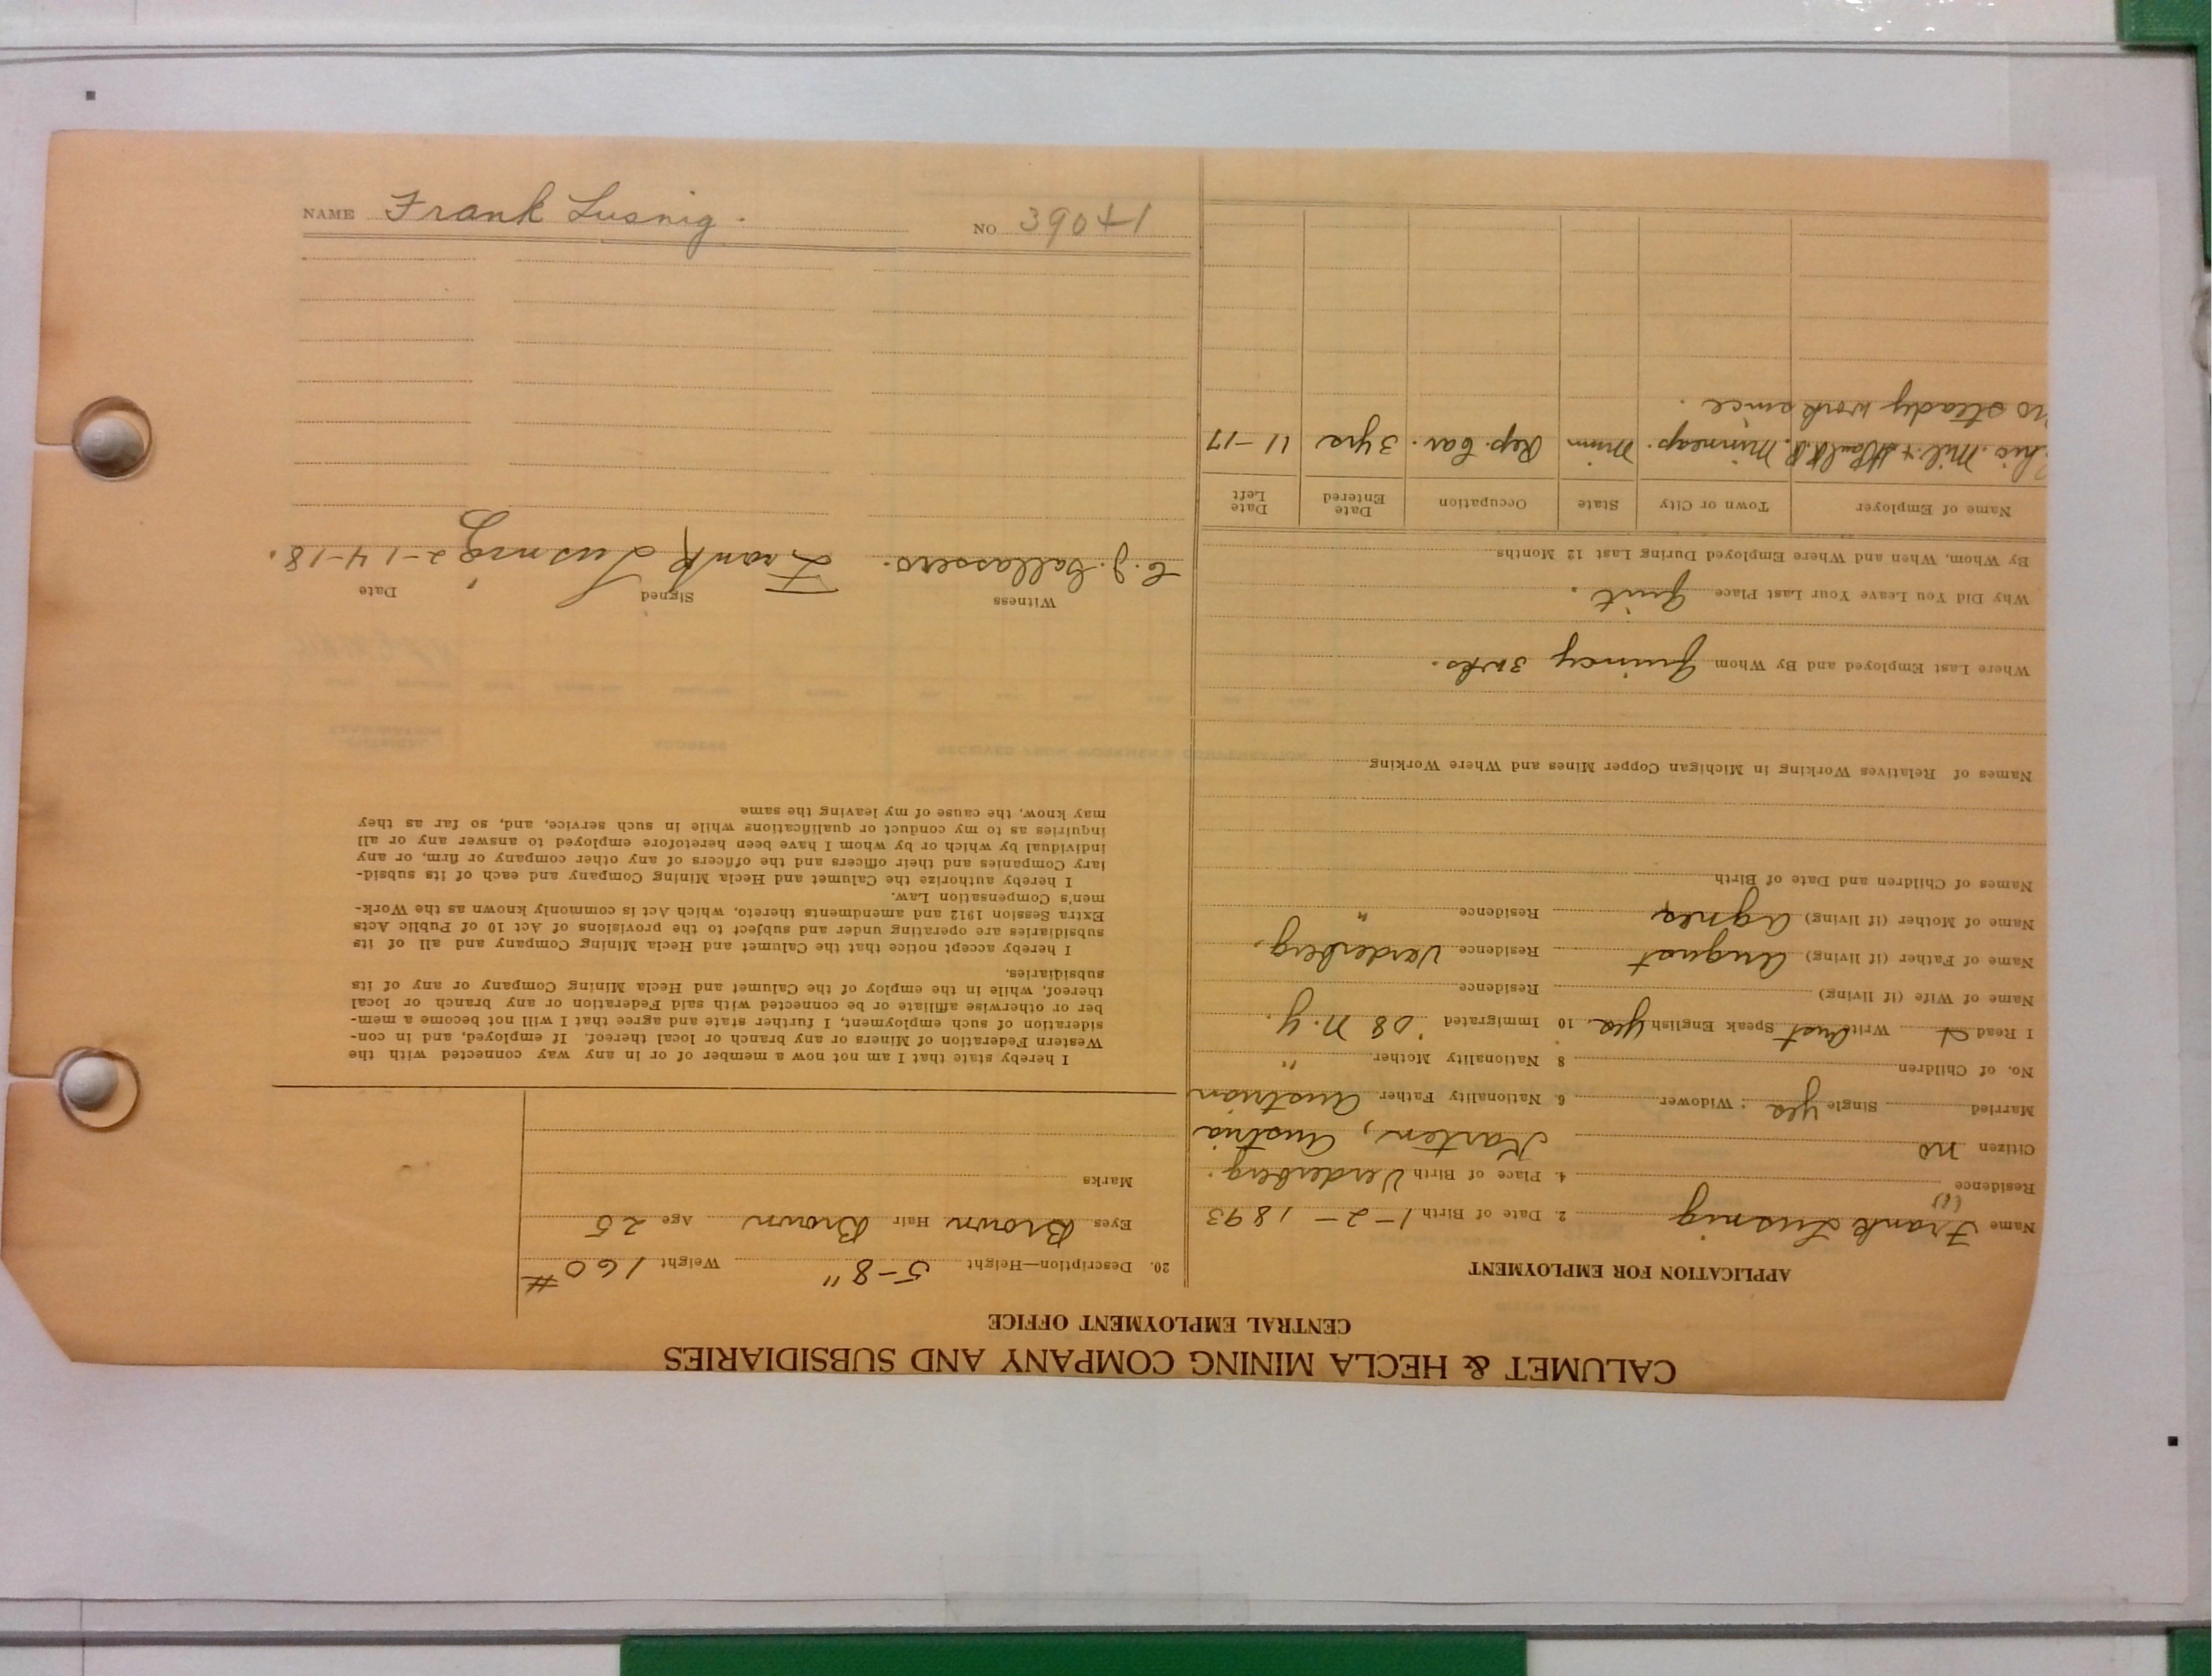 CALUMET & HECLA MINING COMPANY AND SUBSIDIARIES
CENTRAL EMPLOYMENT OFFICE
APPLICATION FOR EMPLOYMENT
Name Frank Lusnig 2. Date of Birth 1-2-1893
Residence 4. Place of Birth Verdenberg.
Citizen no Karten, Austria
Married Single yes Widower 6. Nationality Father Austrian
No. of Children 8 Nationality Mother "
I Read & Write Aust Speak English yes. 10 Immigrated '08 N.Y.
Name of Wife (if living) Residence
Name of Father (if living) August Residence Verdenberg.
Name of Mother (if living) Agnes Residence "
Names of Children and Date of Birth
Names of Relatives Working in Michigan Copper Mines and Where Working
Where Last Employed and By Whom Quincy 3 wks.
Why Did You Leave Your Last Place quit.
By Whom, When and Where Employed During Last 12 Months
Name of Employer Town or City State Occupation Date Entered Date Left
Chic. Mil. & St Paul R.R. Minneap. Minn Rep. Car. 3 yrs 11-17
No steady work since.
20. Description—Height 5-8" Weight 160#
Eyes Brown Hair Brown Age 25
Marks
I hereby state that I am not now a member of or in any way connected with the
Western Federation of Miners or any branch or local thereof. If employed, and in con-
sideration of such employment, I further state and agree that I will not become a mem-
ber or otherwise affiliate or be connected with said Federation or any branch or local
thereof, while in the employ of the Calumet and Hecla Mining Company or any of its
subsidiaries.
I hereby accept notice that the Calumet and Hecla Mining Company and all of its
subsidiaries are operating under and subject to the provisions of Act 10 of Public Acts
Extra Session 1912 and amendments thereto, which Act is commonly known as the Work-
men's Compensation Law.
I hereby authorize the Calumet and Hecla Mining Company and each of its subsid-
iary Companies and their officers and the officers of any other company or firm, or any
individual by which or by whom I have been heretofore employed to answer any or all
inquiries as to my conduct or qualifications while in such service, and, so far as they
may know, the cause of my leaving the same
Witness Signed Date
C. J. Frank Lusnig 2-14-18.
NAME Frank Lusnig. NO 39041